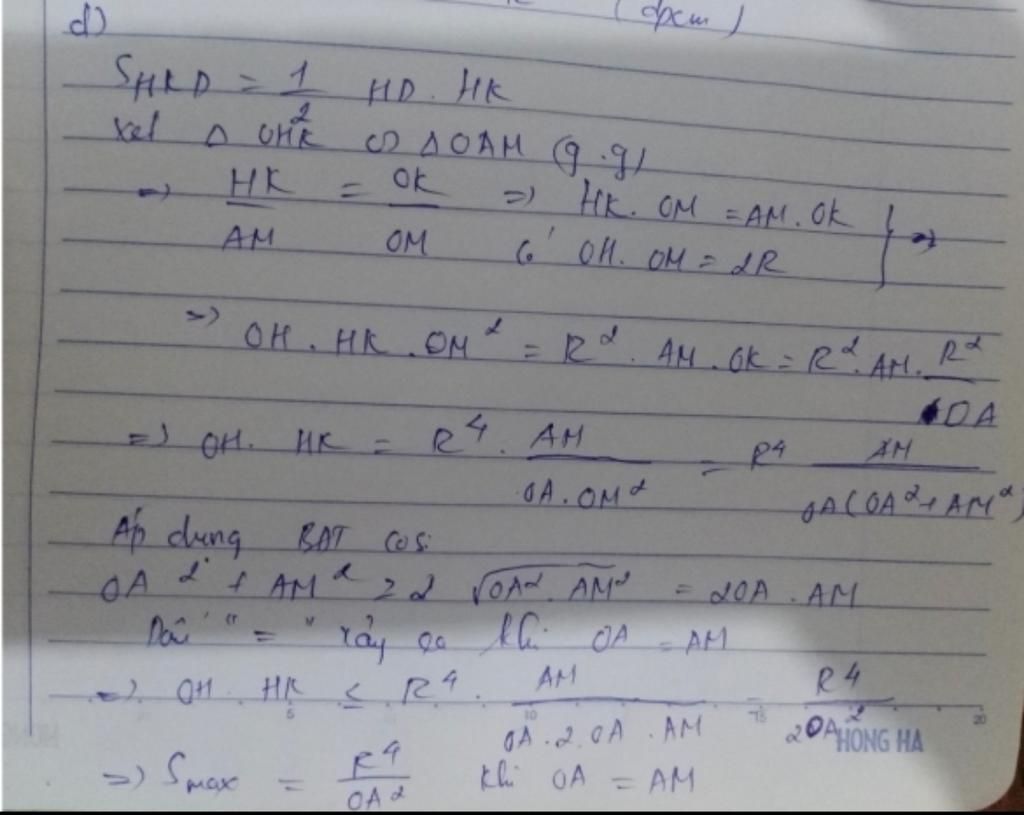 (đpcm)
d)
S_HKD = 1/2 HD. HK
Xét Δ OHK ∽ Δ OAM (g.g)
=> HK/AM = OK/OM => HK. OM = AM. OK
có OH. OM = 2R } =>
=> OH. HK. OM² = R². AM. OK = R². AM. R²/OA
=> OH. HK = R⁴. AM/OA.OM² = R⁴ AM/OA(OA²+AM²)
Áp dụng BĐT cosi
OA² + AM² ≥ 2 √OA². AM² = 2OA. AM
Dấu "=" xảy ra khi OA = AM
=> OH. HK ≤ R⁴. AM/OA.2.OA.AM = R⁴/2OA²
5 10 15 20
HONG HA
=> Smax = R⁴/OA² khi OA = AM